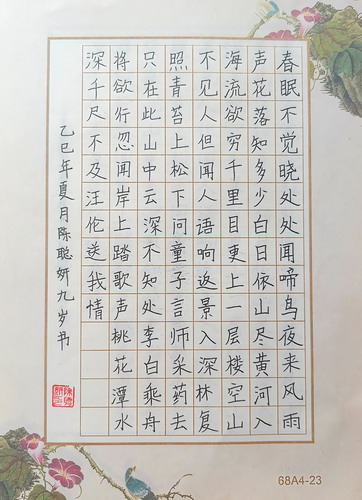 春眠不觉晓处处闻啼鸟夜来风雨
声花落知多少白日依山尽黄河入
海流欲穷千里目更上一层楼空山
不见人但闻人语响返景入深林复
照青苔上松下问童子言师采药去
只在此山中云深不知处李白乘舟
将欲行忽闻岸上踏歌声桃花潭水
深千尺不及汪伦送我情
乙巳年夏月陈聪妍九岁书
68A4-23